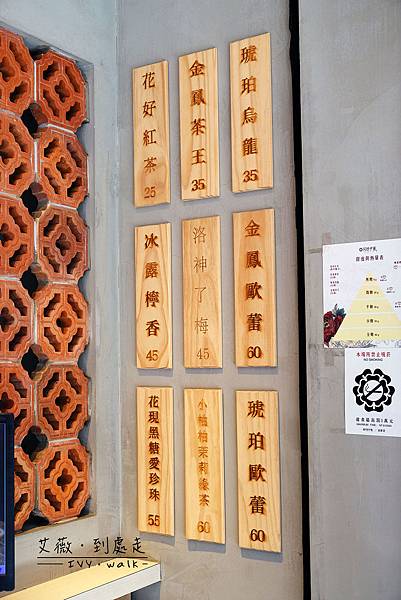 花好紅茶
25
金鳳茶王
35
琥珀烏龍
35
冰露檸香
45
洛神了梅
45
金鳳歐蕾
60
花現黑糖愛珍珠
55
小柚柚茉莉綠茶
60
琥珀歐蕾
60
甜度與熱量表
本場所禁止吸菸
NO SMOKING
艾薇·到處走
IVY·walk